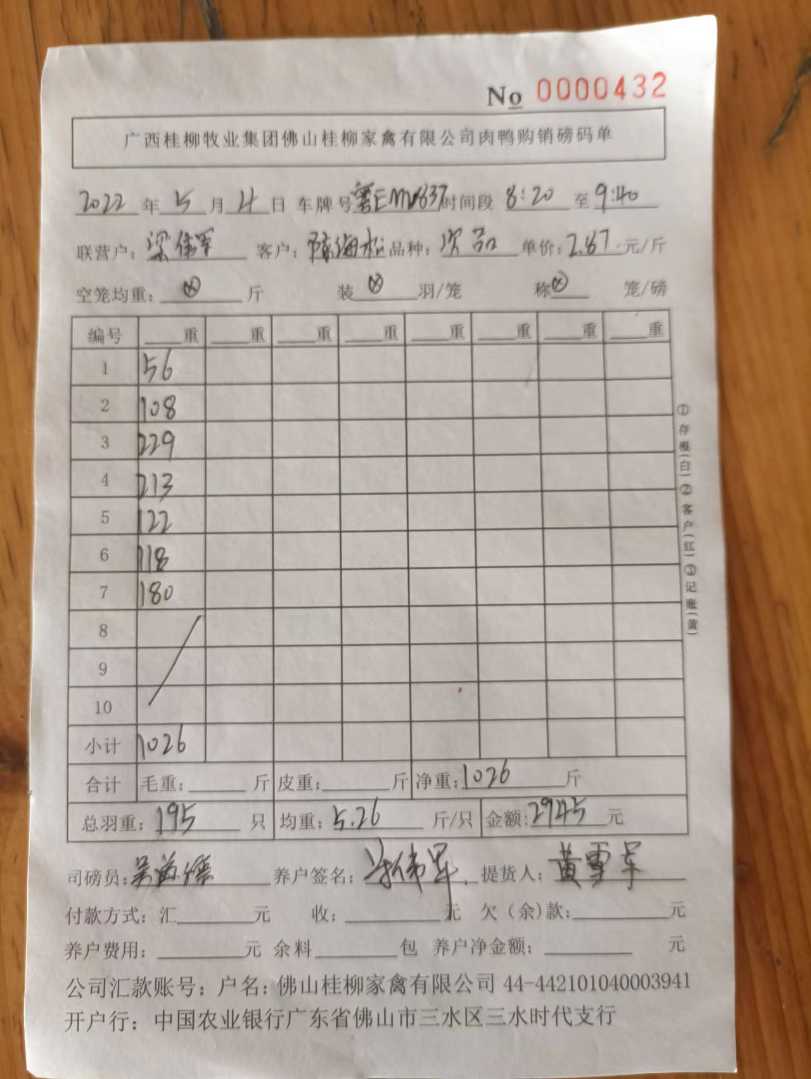 No 0000432
广西桂柳牧业集团佛山桂柳家禽有限公司肉鸭购销磅码单
2022 年 5 月 4 日 车牌号 粤EMU637 时间段 8:20 至 9:40
联营户: 梁伟军 客户: 陈海松 品种: 次品 单价: 2.87 元/斤
空笼均重: 斤 装 羽/笼 称 笼/磅
编号 重 重 重 重 重 重 重 重
1 56
2 108
3 229
4 213
5 122
6 118
7 180
8
9
10
小计 1026
合计 毛重: 斤 皮重: 斤 净重: 1026 斤
总羽重: 195 只 均重: 5.26 斤/只 金额: 2945 元
司磅员: 养户签名: 梁伟军 提货人: 黄雪军
付款方式: 汇 元 收: 元 欠(余)款: 元
养户费用: 元 余料 包 养户净金额: 元
公司汇款账号: 户名: 佛山桂柳家禽有限公司 44-442101040003941
开户行: 中国农业银行广东省佛山市三水区三水时代支行
①存根(白)②客户(红)③记账(黄)